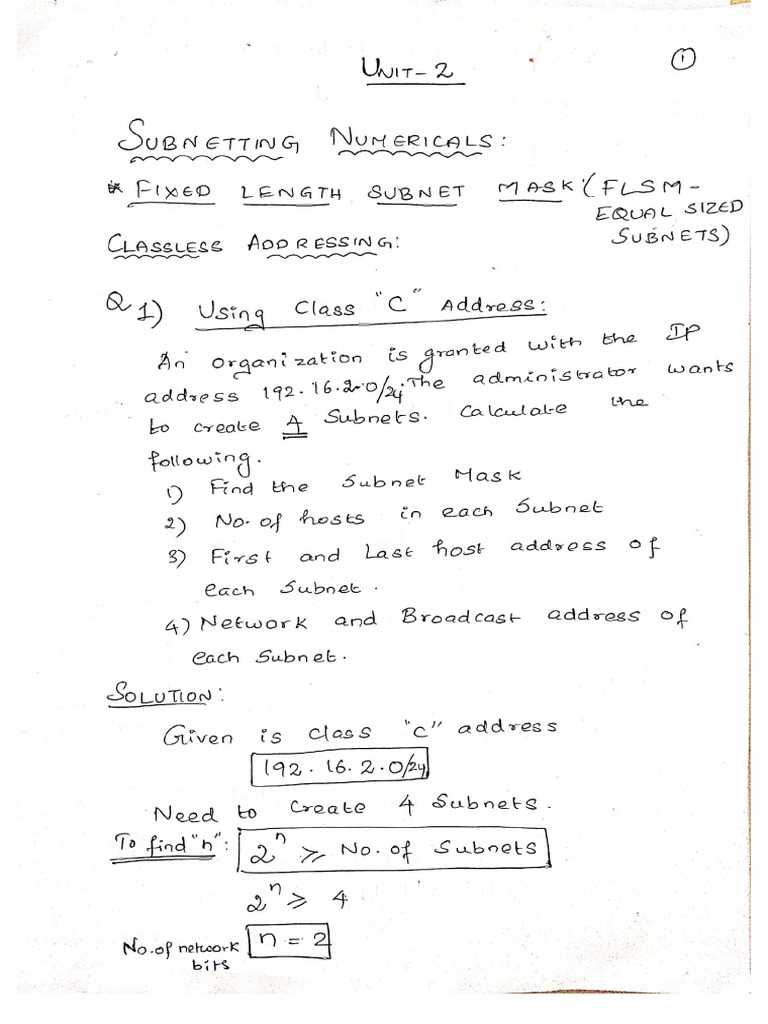 UNIT-2
①
SUBNETTING NUMERICALS:
* FIXED LENGTH SUBNET MASK: (FLSM-
EQUAL SIZED
SUBNETS)
CLASSLESS ADDRESSING:
Q 1) Using Class "C" Address:
An organization is granted with the IP
address 192.16.2.0/24. The administrator wants
to create 4 Subnets. Calculate the
following.
1) Find the Subnet Mask
2) No. of hosts in each Subnet
3) First and Last host address of
each Subnet.
4) Network and Broadcast address of
each Subnet.
SOLUTION:
Given is class "C" address
192.16.2.0/24
Need to Create 4 Subnets.
To find "n": 2ⁿ ⩾ No. of Subnets
2ⁿ ⩾ 4
No. of network n = 2
bits